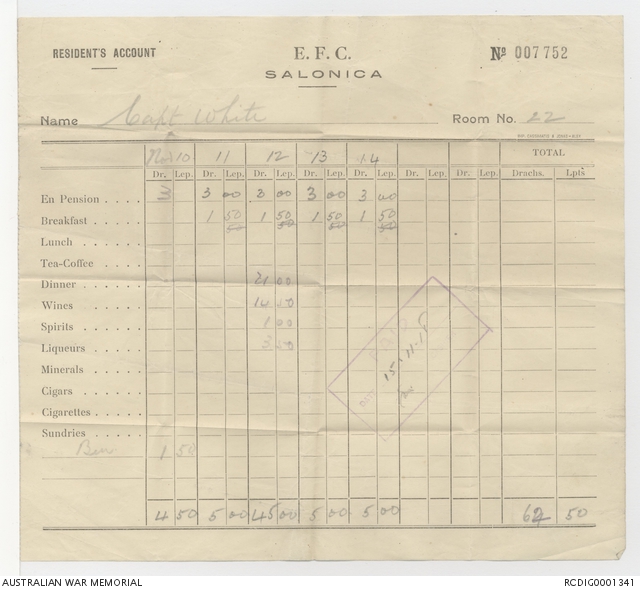 RESIDENT'S ACCOUNT
E. F. C.
SALONICA
№ 007752
Name Capt White
Room No. 22
Nov 10 11 12 13 14 TOTAL
Dr. Lep. Dr. Lep. Dr. Lep. Dr. Lep. Dr. Lep. Dr. Lep. Dr. Lep. Drachs. Lpts
En Pension . . . . 3 3 00 3 00 3 00 3 00
Breakfast . . . . . 1 50 1 50 1 50 1 50
50 50 50 50
Lunch . . . . . .
Tea-Coffee . . . .
Dinner . . . . . . 21 00
Wines . . . . . . 14 50
Spirits . . . . . . 1 00
Liqueurs . . . . . 3 50
Minerals . . . . .
Cigars . . . . . .
Cigarettes . . . . .
Sundries . . . . .
1 50
4 50 5 00 45 00 5 00 5 00 62 50
PAID
DATE 15.11.18
AUSTRALIAN WAR MEMORIAL
RCDIG0001341